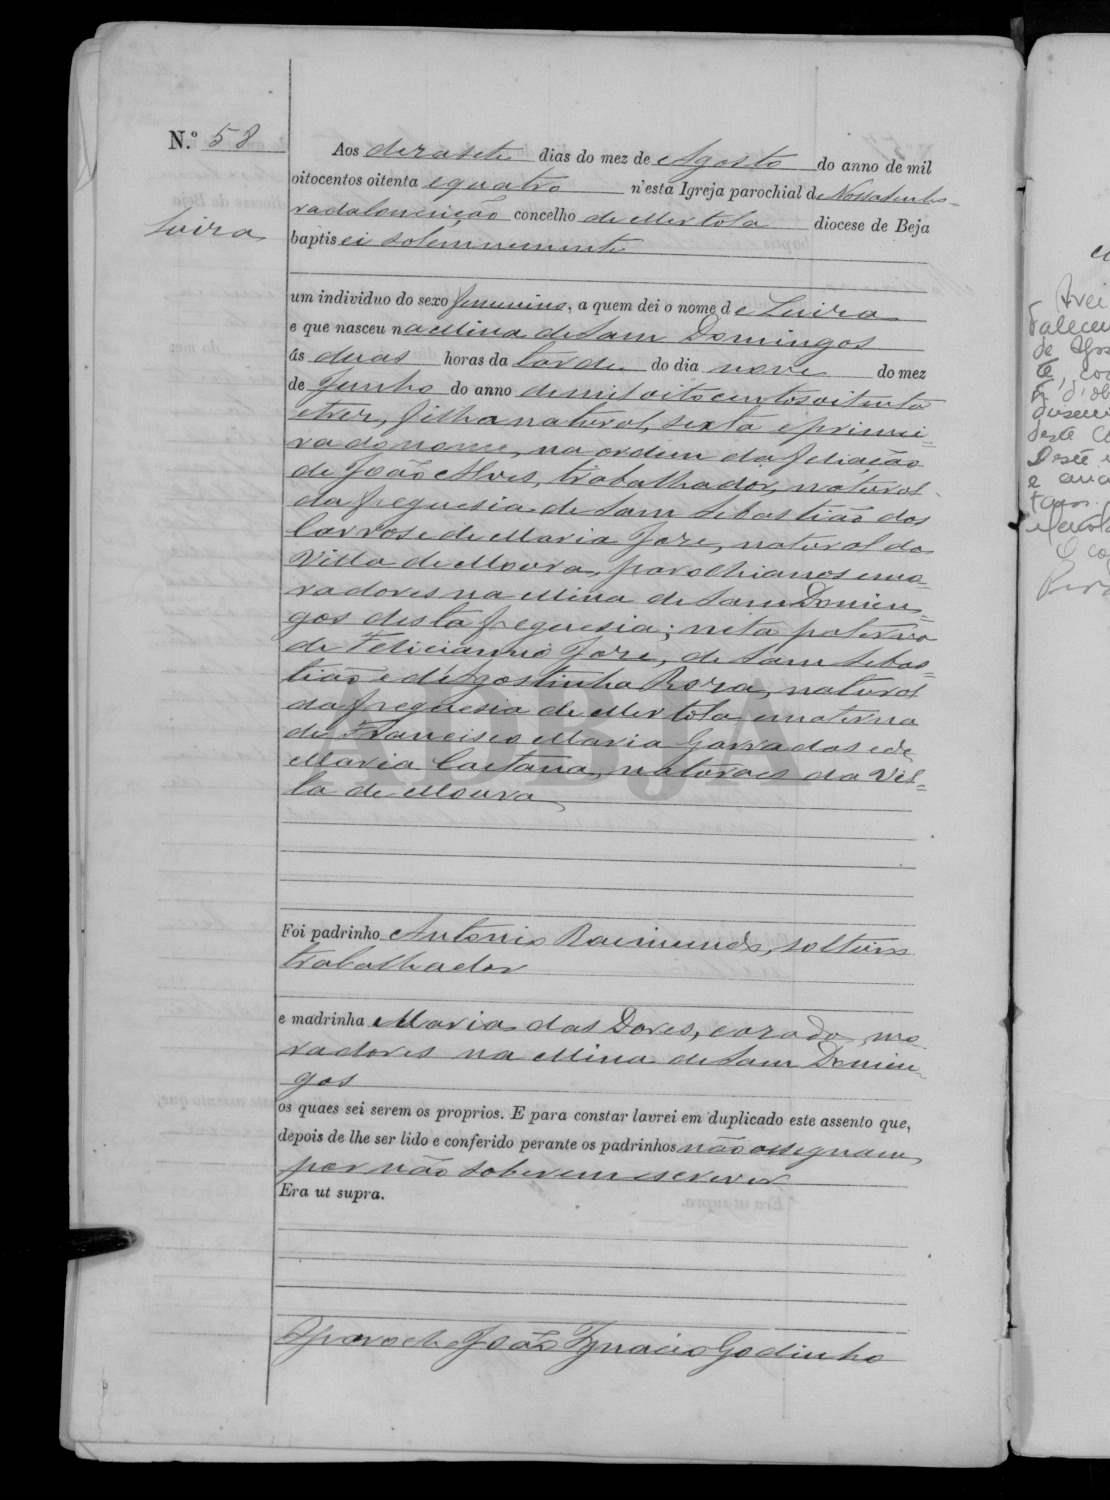 N.º 58
Luiza
Aos dezasete dias do mez de Agosto do anno de mil
oitocentos oitenta e quatro n'esta Igreja parochial de Nossa Senho-
ra da Conceição concelho de Mertola diocese de Beja
baptisei solemnemente
um individuo do sexo femenino, a quem dei o nome de Luiza
e que nasceu na Mina de Sam Domingos
ás duas horas da tarde do dia nove do mez
de Junho do anno de mil oitocentos oitenta
e tres, filha natural, sexta e primei=
ra do nome, na ordem da filiação
de João Alves, trabalhador, natural
da freguesia de Sam Sebastião dos
Carros e de Maria Joze, natural da
Villa de Moura, parochianos e mo-
radores na Mina de Sam Domin=
gos desta freguesia; neta paterna
de Felicianno Joze, de Sam Sebas=
tião e d'Agostinha Roza, natural
da freguesia de Mertola e materna
de Francisco Maria Garradas e de
Maria Caetana, naturaes da Vil=
la de Moura
Foi padrinho Antonio Raimundo, solteiro
trabalhador
e madrinha Maria das Dores, cazada, mo-
radores na Mina de Sam Domin-
gos
os quaes sei serem os proprios. E para constar lavrei em duplicado este assento que,
depois de lhe ser lido e conferido perante os padrinhos não assignam,
por não saberem escrever
Era ut supra.
O paroche João Ignacio Godinho
ADBJA